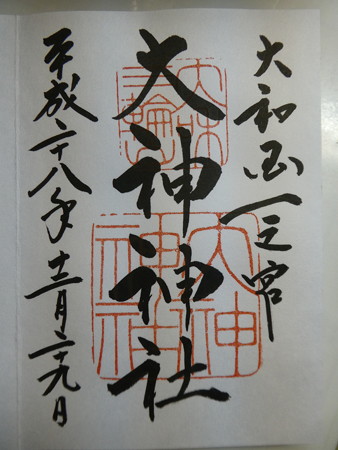 大和国一之宮
大神神社
平成二十八年十二月二十九日
三輪
大神神社